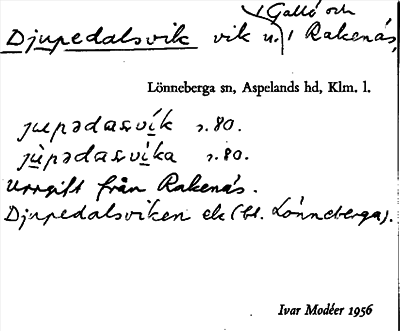 Djupedalsvik vik u. / Gallö och / Rakenäs,
Lönneberga sn, Aspelands hd, Klm. l.
jupədasvík s. 80.
jùpədasvika s. 80.
Uppgift från Rakenäs.
Djupedalsviken ek (bl. Lönneberga).
Ivar Modéer 1956